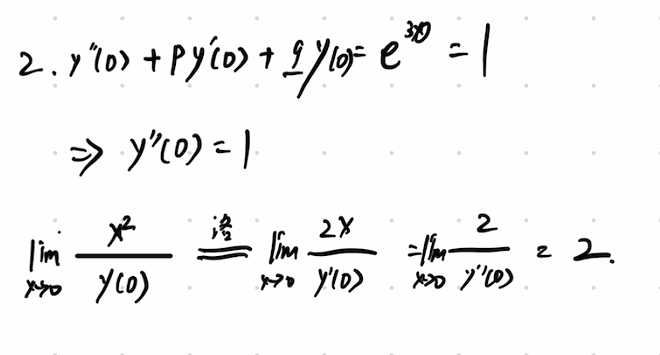 2. y''(0) + Py'(0) + qy(0) = e^{3×0} = 1
⇒ y''(0) = 1
lim_{x→0} x²/y(0) 洛 lim_{x→0} 2x/y'(0) = lim_{x→0} 2/y''(0) = 2.